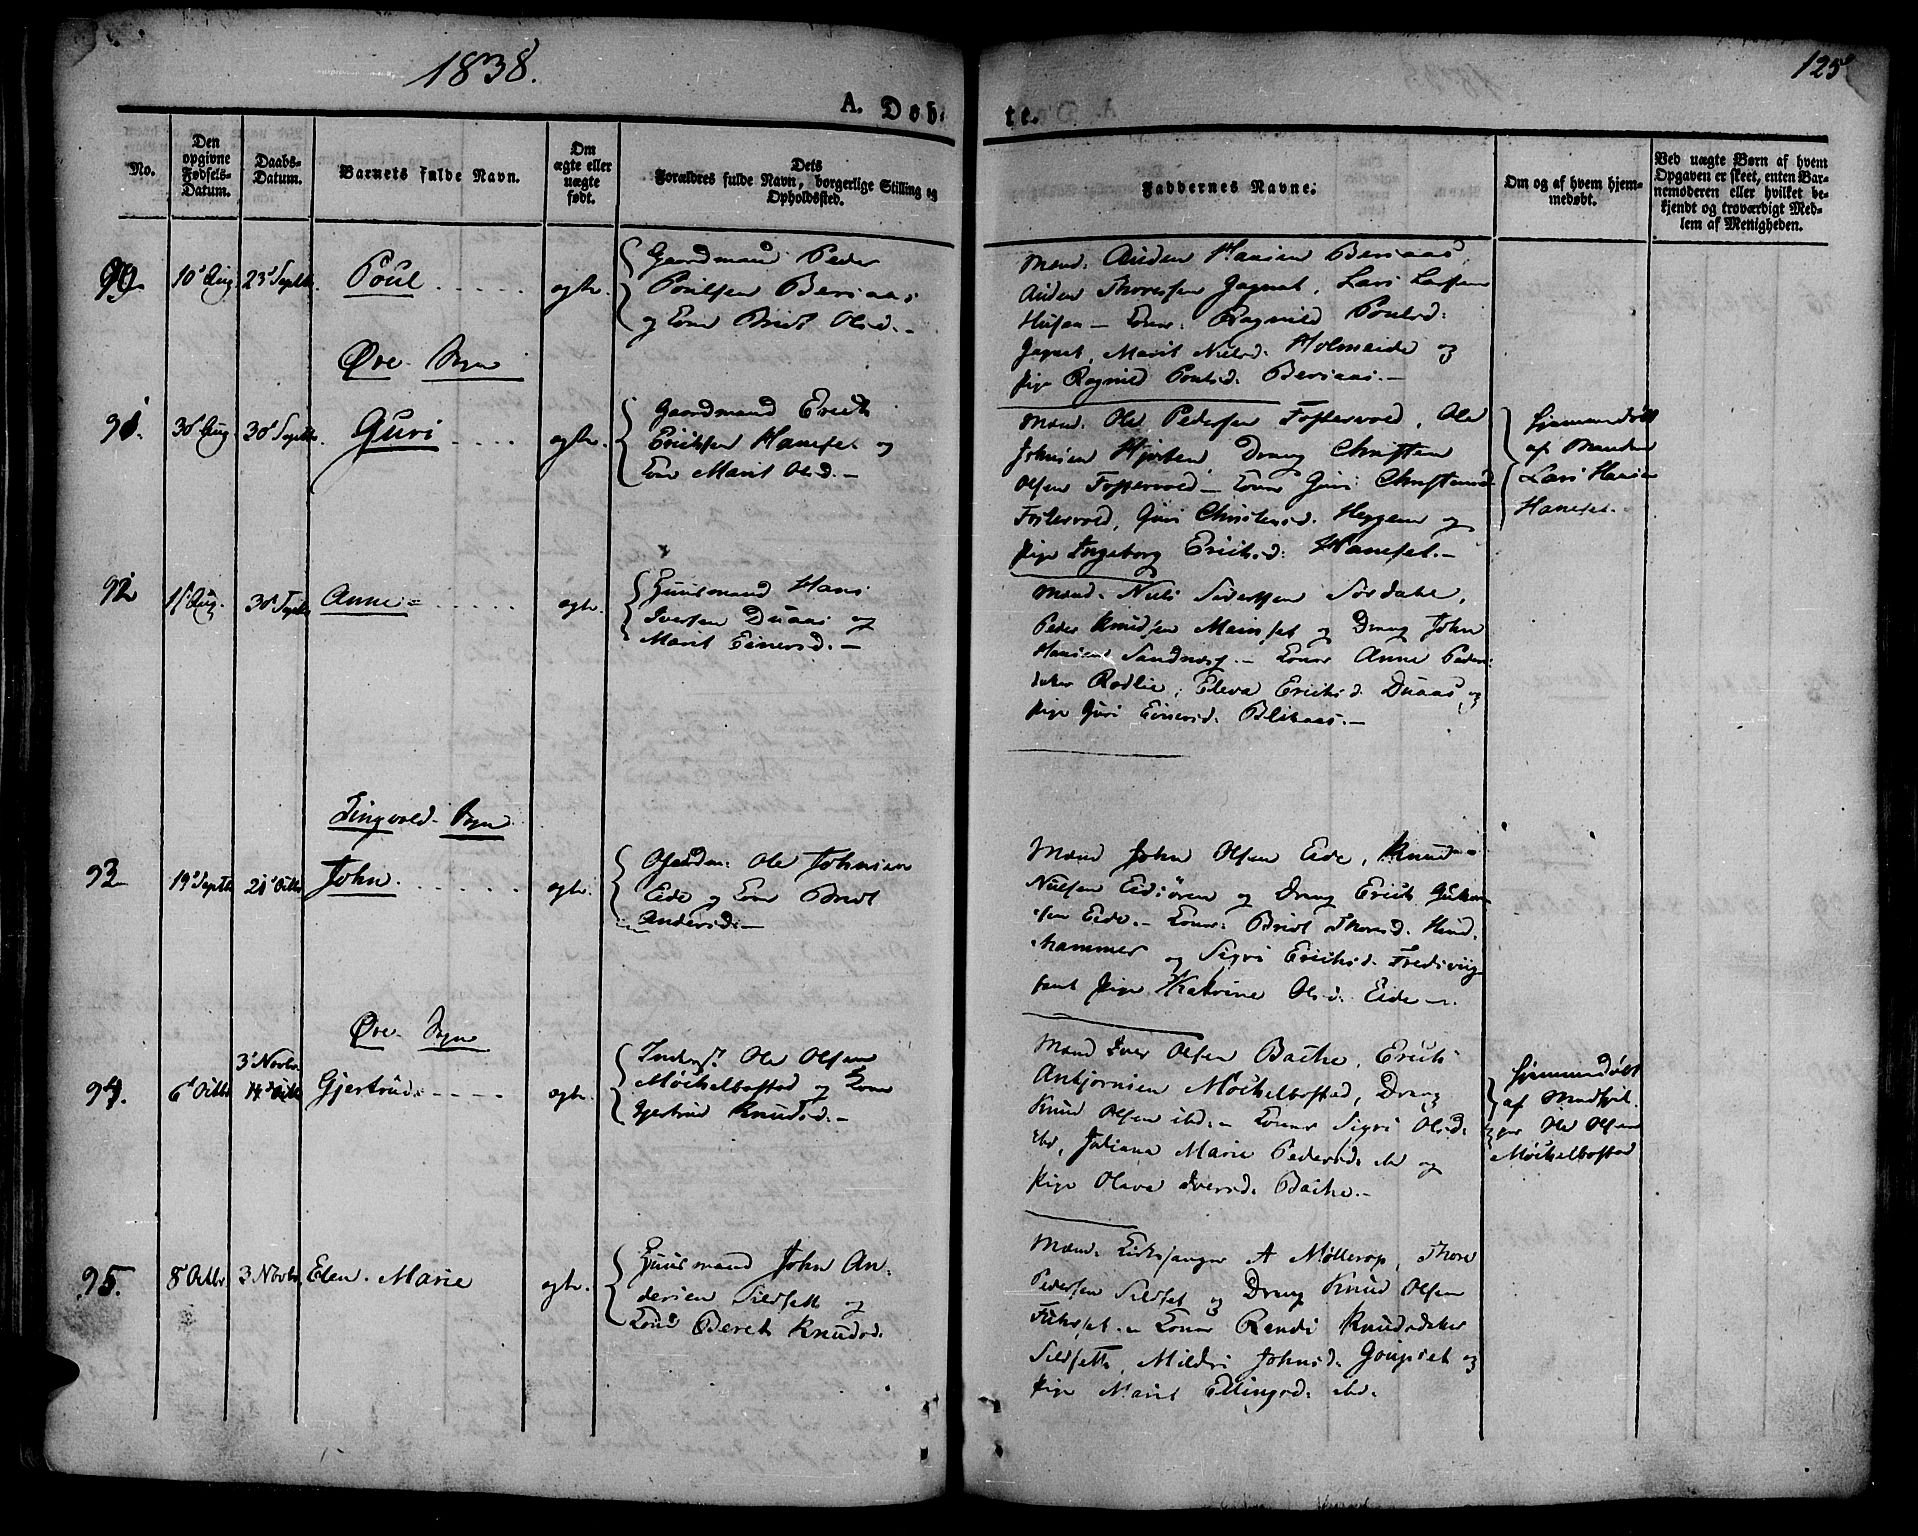 1838.
125
A. Døb-
te.
No.
Den
opgivne
Fødsels-
Datum.
Daabs-
Datum.
Barnets fulde Navn.
Om
ægte eller
uægte
født.
Dets
Forældres fulde Navn, borgerlige Stilling og
Opholdssted.
Faddernes Navne.
Om og af hvem hjem-
medøbt.
Ved uægte Børn af hvem
Opgaven er skeet, enten Bar-
nemoderen eller hvilket be-
kjendt og troværdigt Med-
lem af Menigheden.
90
10' Aug
23' Septbr.
Poul
ægte.
Gaardmand Peder
Poulsen Bersaas
og Kone Bridt Olsd.
Mænd. Auden Hansen Bersaas,
Auden Thoresen Jagnet, Lars Larsen
Husøn - Koner: Ragnild Poulsd:
Jagnet, Marit Nielsd. Holmeide og
Pige Ragnild Poulsd. Bersaas.
Øre Sogn
91.
30' Aug
30' Septbr.
Guri
ægte.
Gaardmand Erick
Ericksen Haneset og
Kone Marit Olsd.
Mænd. Ole Pedersen Fostervold, Ole
Johnsen Hjorten Dreng Christen
Olsen Fostervold - Koner Guri Christensd.
Fostervold, Guri Christensd. Heggem og
Pige Ingeborg Ericksd: Haneset.
hjemmedøbt
af Manden
Lars Hansen
Haneset.
92
11' Aug.
30' Septbr
Anne
ægte.
Huusmand Hans
Iversen Duaas og
Marit Einersd.
Mænd. Niels Siversen Sørdahl,
Peder Knudsen Meinset og Dreng John
Hansen Sandnæs. - Koner Anne Peders-
datter Rødlie, Eleva Ericksd. Duaas og
Pige Guri Einersd. Blikaas.
Tingvold Sogn
93
19' Septbr
21' Octbr
John.
ægte.
Gaardm: Ole Johnsen
Eide og Kone Bridt
Andersd.
Mænd John Olsen Eide, Knud
Nielsen Eidsøren og Dreng Erick
sen Eide. - Koner: Bridt Thoresd. Hind-
hammer og Sigri Ericksd. Fredsvig
samt Pige Katrine Olsd. Eide.
Øre Sogn
94.
6' Octbr
3' Novbr
14' Octbr
Gjertrud.
ægte.
Inderst Ole Olsen
Møckelbostad og Kone
Gjertrud Knudsd.
Mænd Iver Olsen Bache, Erick
Anbjørnsen Møckelbostad, Dreng
Knud Olsen ibd. - Koner Sigri Olsd.
ibd, Juliana Marie Pedersd. ibd og
Pige Olava Iversd. Bache.
hjemmedøbt
af Medhjel-
per Ole Olsen
Møckelbostad
95.
8' Octbr
3 Novbr.
Elen Marie
ægte.
Huusmand John An-
dersen Sildset og
Kone Beret Knudsd.
Mænd. Kirkesanger A Møllerop, Thore
Pedersen Sildset og Dreng Knud Olsen
Fuhrset. - Koner Randi Knudsdatter
Sildsett, Mildri Johnsd. Goupset og
Pige Marit Ellingsd. ibd.